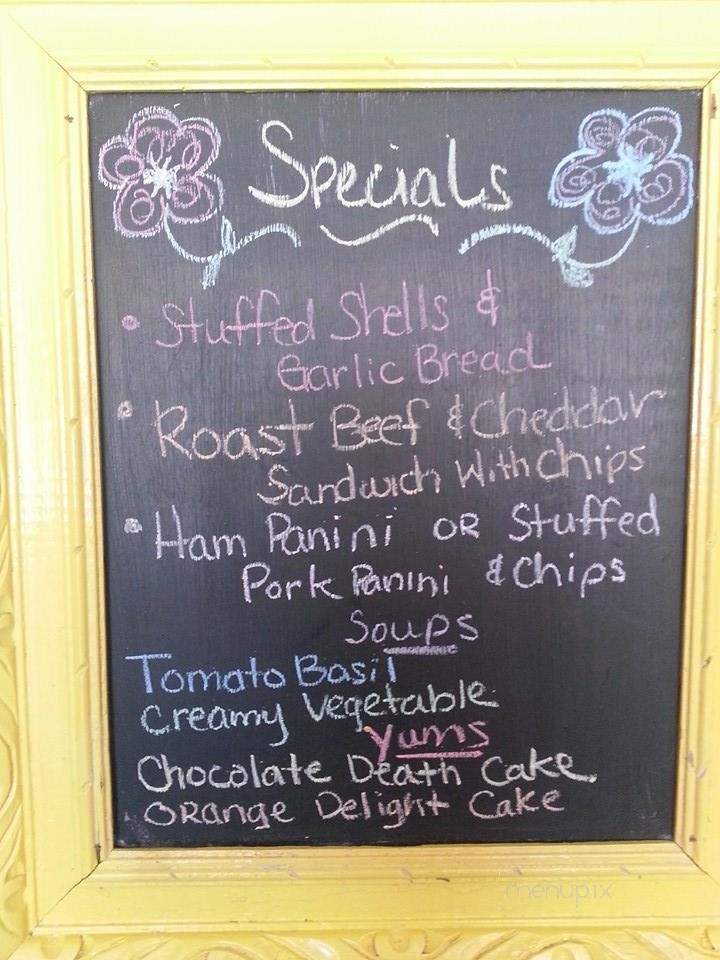 Specials
• Stuffed Shells &
Garlic Bread
• Roast Beef & Cheddar
Sandwich With Chips
• Ham Panini OR Stuffed
Pork Panini & Chips
Soups
Tomato Basil
Creamy Vegetable
Yums
Chocolate Death Cake
Orange Delight Cake
menupix